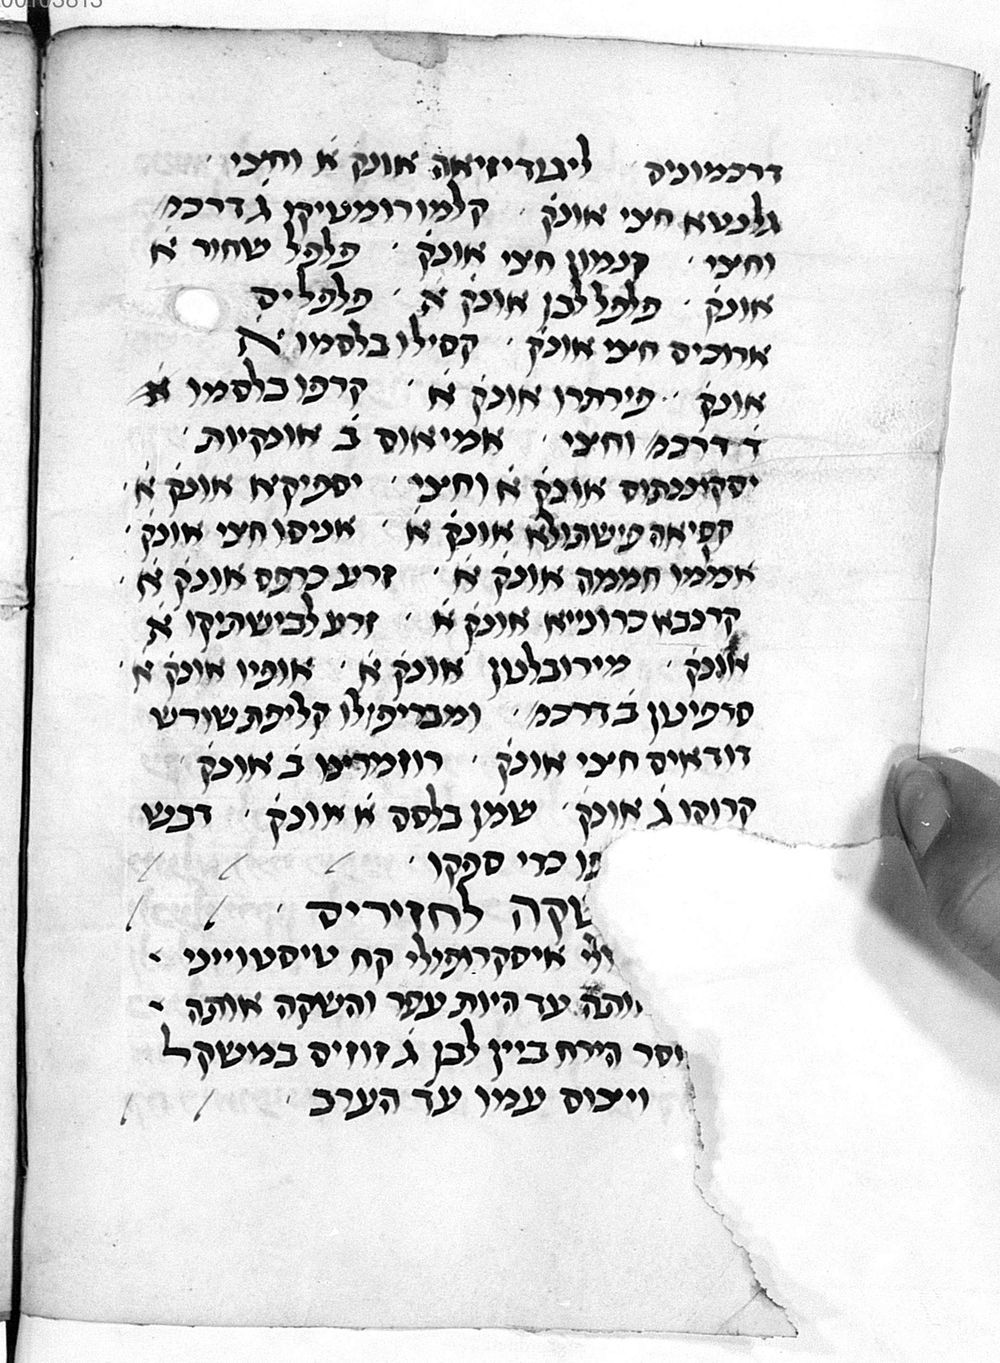 דרכמוניס ליגוריזיאה אונק׳ א׳ וחצי ·
גלנגא חצי אונק׳ · קלמו רומטיקו ג׳ דרכמ׳
וחצי · קנמון חצי אונק׳ · פלפל שחור א׳
אונק׳ · פלפל לבן אונק׳ א׳ · פלפלים
ארוכים חצי אונק׳ · קסילו בלסמו א׳
אונק׳ · פירתרו אונק׳ א׳ · קרפו בלסמו א׳
ד׳ דרכמ׳ וחצי · אמיאוס ב׳ אונקיות ·
יסקיננתוס אונק׳ א׳ וחצי · יספיקא אונק׳ א׳ ·
קסיאה פישתולא אונק׳ א׳ · אניסו חצי אונק׳ ·
אממו חממה אונק׳ א׳ · זרע כרפס אונק׳ א׳ ·
קרנבא כרוייא אונק׳ א׳ · זרע לבישתיקו א׳
אונק׳ · מירובלטן אונק׳ א׳ · אופיו אונק׳ א׳ ·
סרפיטן ב׳ דרכמ׳ · קליפת שורש
דודאים חצי אונק׳ · רוזמרינו ב׳ אונק׳ ·
קרוקו ג׳ אונק׳ · שמן בלסם א׳ אונק׳ · דבש
כדי ספקו ·
שקה לחזירים ·
איסקרופולי קח טיסטוייני ·
אותה עד היות עפר והשקה אותה ·
וסר הירח ביין לבן ג׳ זוזים במשקל
ויצום עמו עד הערב ·